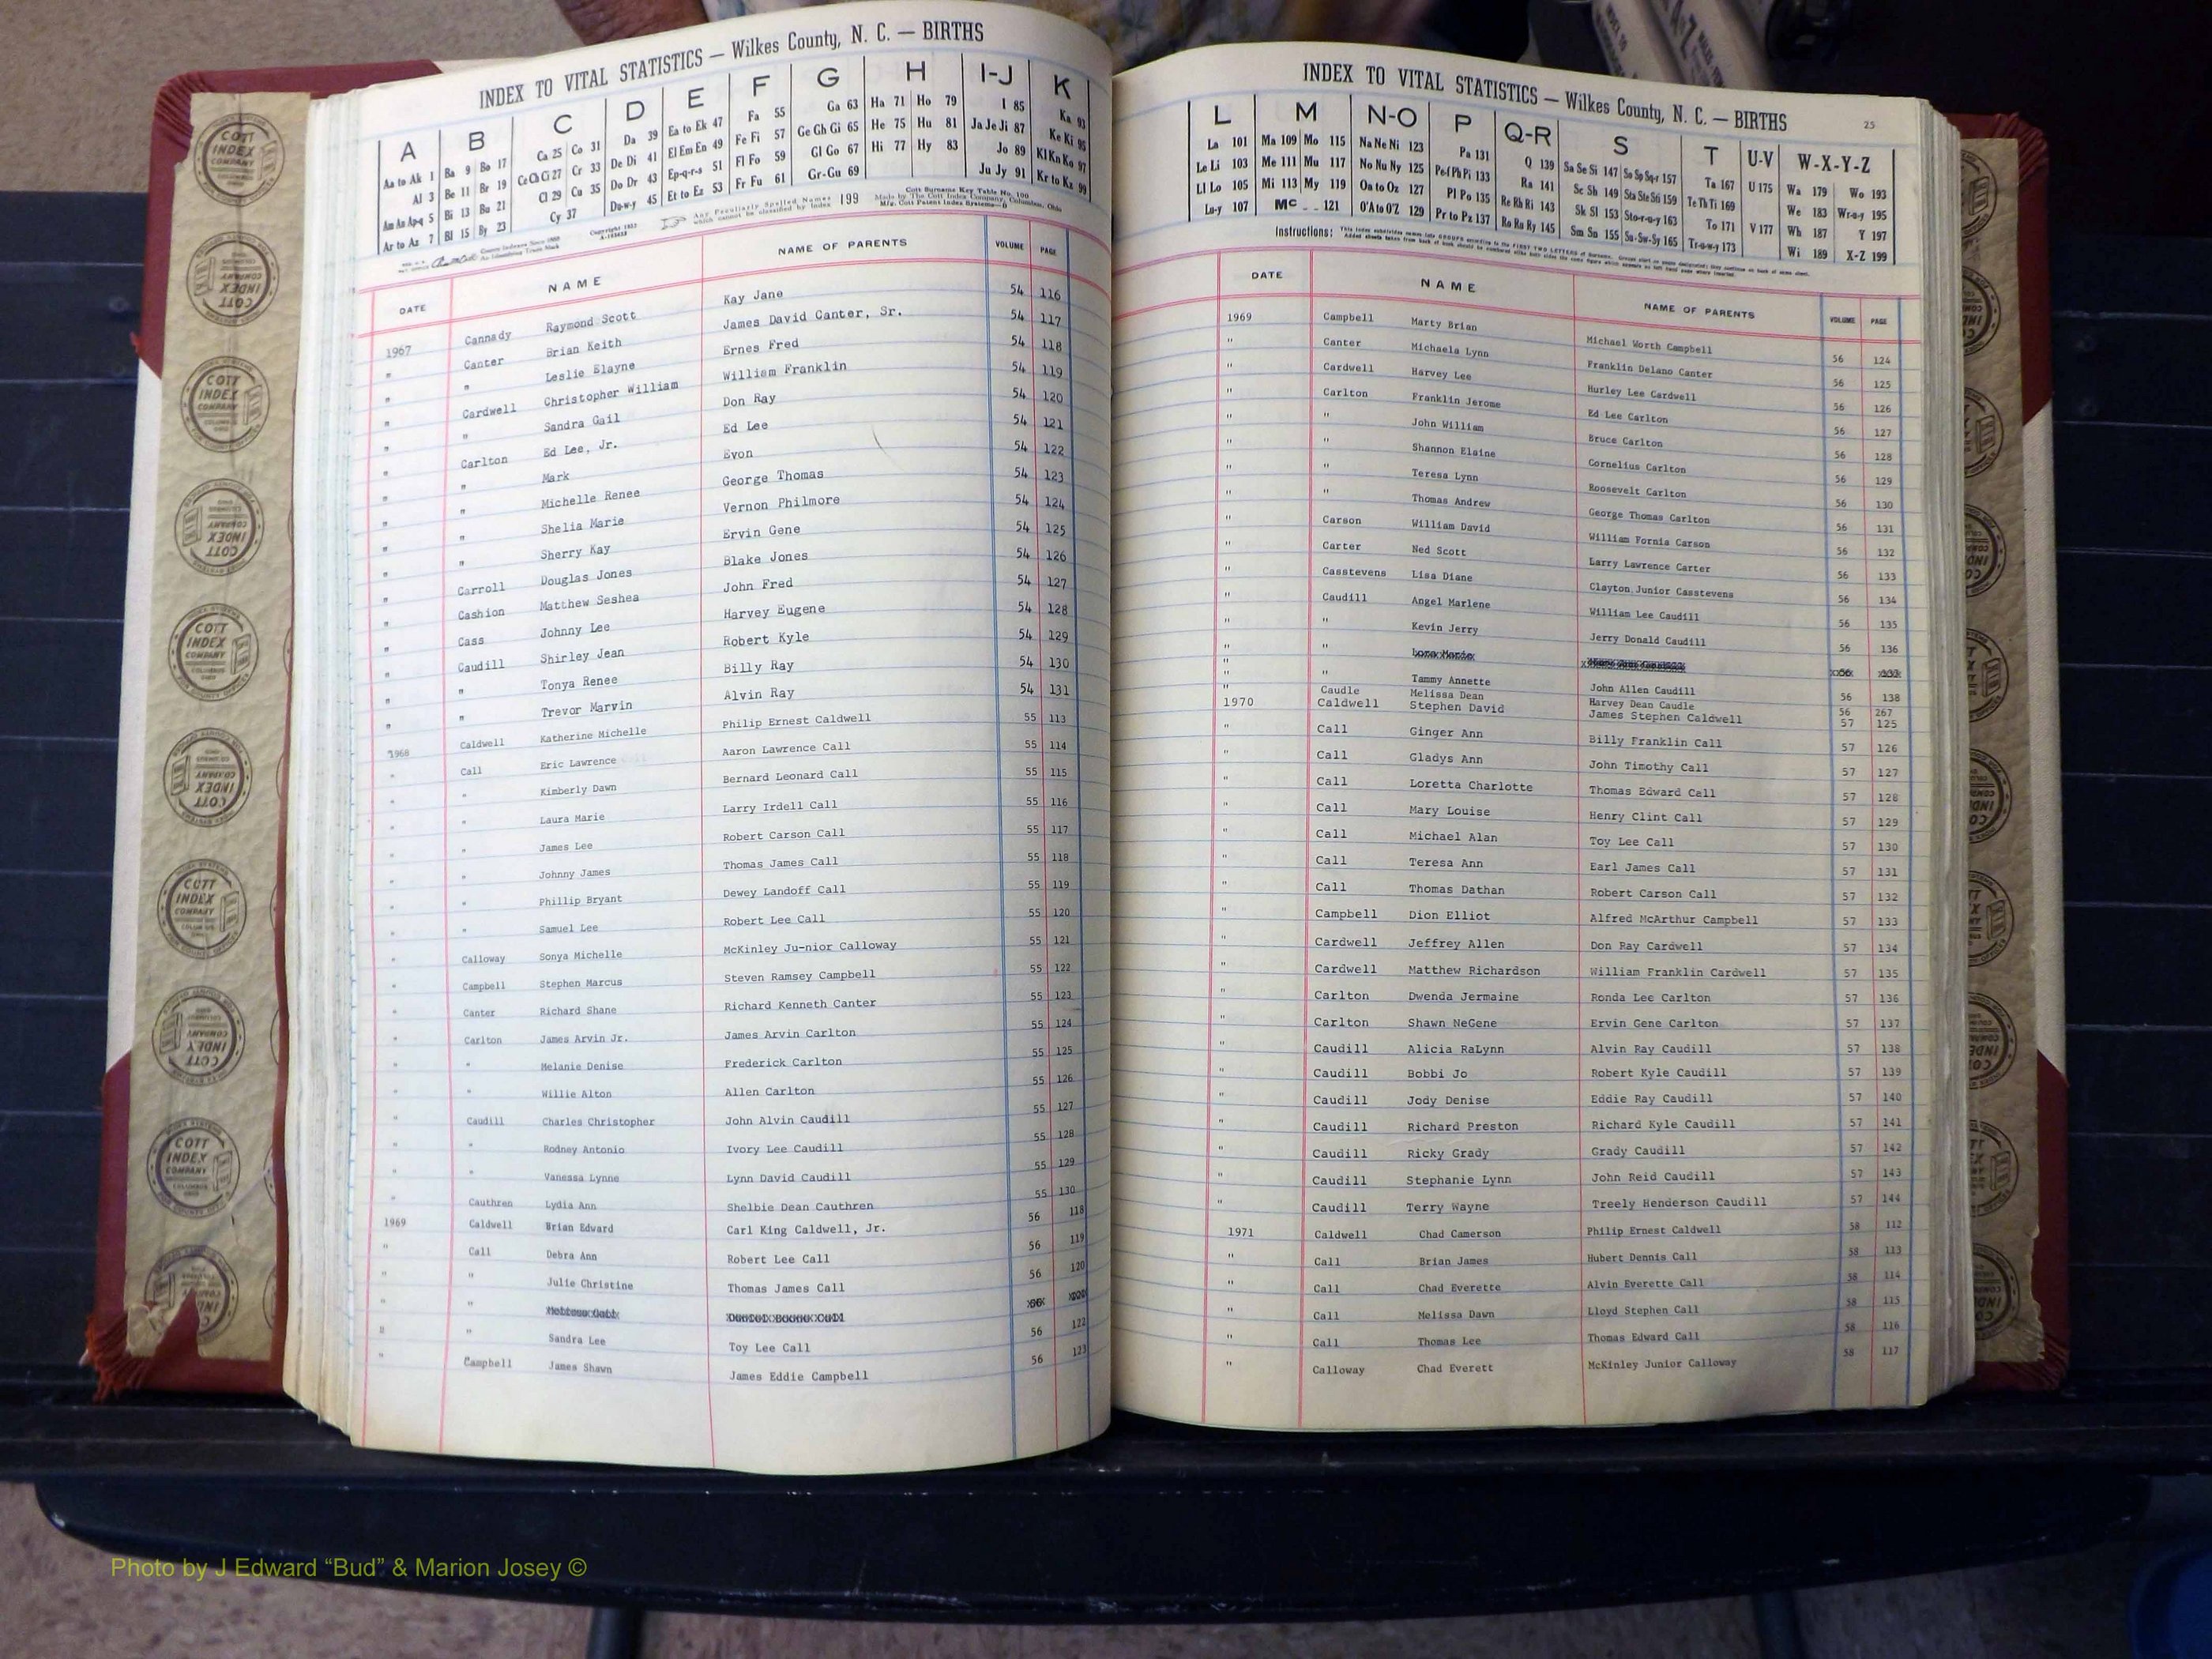 INDEX TO VITAL STATISTICS — Wilkes County, N. C. — BIRTHS
A B C D E F G H I-J K
Aa to Ak 1 Ba 9 Bo 17 Ca 25 Co 31 Da 39 Ea to Ek 47 Fa 55 Ga 63 Ha 71 Ho 79 I 85 Ka 93
Al 3 Be 11 Br 19 Ce Ch Ci 27 Cr 33 De Di 41 El Em En 49 Fe Fi 57 Ge Gh Gi 65 He 75 Hu 81 Ja Je Ji 87 Ke Ki 95
Am An Ap-q 5 Bi 13 Bu 21 Cl 29 Cu 35 Do Dr 43 Ep-q-r-s 51 Fl Fo 59 Gl Go 67 Hi 77 Hy 83 Jo 89 Kl Kn Ko 97
Ar to Az 7 Bl 15 By 23 Cy 37 Du-w-y 45 Et to Ez 53 Fr Fu 61 Gr-Gu 69 Ju Jy 91 Kr to Kz 99
Any Peculiarly Spelled Names which cannot be classified by index 199
DATE NAME NAME OF PARENTS VOLUME PAGE
1967 Cannady Raymond Scott Kay Jane 54 116
" Canter Brian Keith James David Canter, Sr. 54 117
" " Leslie Elayne Ernes Fred 54 118
" Cardwell Christopher William William Franklin 54 119
" " Sandra Gail Don Ray 54 120
" Carlton Ed Lee, Jr. Ed Lee 54 121
" " Mark Evon 54 122
" " Michelle Renee George Thomas 54 123
" " Shelia Marie Vernon Philmore 54 124
" " Sherry Kay Ervin Gene 54 125
" Carroll Douglas Jones Blake Jones 54 126
" Cashion Matthew Seshea John Fred 54 127
" Cass Johnny Lee Harvey Eugene 54 128
" Caudill Shirley Jean Robert Kyle 54 129
" " Tonya Renee Billy Ray 54 130
" " Trevor Marvin Alvin Ray 54 131
1968 Caldwell Katherine Michelle Philip Ernest Caldwell 55 113
" Call Eric Lawrence Aaron Lawrence Call 55 114
" " Kimberly Dawn Bernard Leonard Call 55 115
" " Laura Marie Larry Irdell Call 55 116
" " James Lee Robert Carson Call 55 117
" " Johnny James Thomas James Call 55 118
" " Phillip Bryant Dewey Landoff Call 55 119
" " Samuel Lee Robert Lee Call 55 120
" Calloway Sonya Michelle McKinley Ju-nior Calloway 55 121
" Campbell Stephen Marcus Steven Ramsey Campbell 55 122
" Canter Richard Shane Richard Kenneth Canter 55 123
" Carlton James Arvin Jr. James Arvin Carlton 55 124
" " Melanie Denise Frederick Carlton 55 125
" " Willie Alton Allen Carlton 55 126
" Caudill Charles Christopher John Alvin Caudill 55 127
" " Rodney Antonio Ivory Lee Caudill 55 128
" " Vanessa Lynne Lynn David Caudill 55 129
" Cauthren Lydia Ann Shelbie Dean Cauthren 55 130
1969 Caldwell Brian Edward Carl King Caldwell, Jr. 56 118
" Call Debra Ann Robert Lee Call 56 119
" " Julie Christine Thomas James Call 56 120
" "
" " Sandra Lee Toy Lee Call 56 122
" Campbell James Shawn James Eddie Campbell 56 123
INDEX TO VITAL STATISTICS — Wilkes County, N. C. — BIRTHS 25
L M N-O P Q-R S T U-V W-X-Y-Z
La 101 Ma 109 Mo 115 Na Ne Ni 123 Pa 131 Q 139 Sa Se Si 147 So Sp Sq-r 157 Ta 167 U 175 Wa 179 Wo 193
Le Li 103 Me 111 Mu 117 No Nu Ny 125 Pe-f Ph Pi 133 Ra 141 Sc Sh 149 Sta Ste Sti 159 Te Th Ti 169 We 183 Wr-u-y 195
Ll Lo 105 Mi 113 My 119 Oa to Oz 127 Pl Po 135 Re Rh Ri 143 Sk Sl 153 Sto-r-u-y 163 To 171 V 177 Wh 187 Y 197
Lu-y 107 Mc 121 O'A to O'Z 129 Pr to Pz 137 Ro Ru Ry 145 Sm Sn 155 Su-Sw-Sy 165 Tr-u-w-y 173 Wi 189 X-Z 199
Instructions:
DATE NAME NAME OF PARENTS VOLUME PAGE
1969 Campbell Marty Brian Michael Worth Campbell 56 124
" Canter Michaela Lynn Franklin Delano Canter 56 125
" Cardwell Harvey Lee Hurley Lee Cardwell 56 126
" Carlton Franklin Jerome Ed Lee Carlton 56 127
" " John William Bruce Carlton 56 128
" " Shannon Elaine Cornelius Carlton 56 129
" " Teresa Lynn Roosevelt Carlton 56 130
" " Thomas Andrew George Thomas Carlton 56 131
" Carson William David William Fornia Carson 56 132
" Carter Ned Scott Larry Lawrence Carter 56 133
" Casstevens Lisa Diane Clayton Junior Casstevens 56 134
" Caudill Angel Marlene William Lee Caudill 56 135
" " Kevin Jerry Jerry Donald Caudill 56 136
" "
" " Tammy Annette John Allen Caudill 56 138
" Caudle Melissa Dean Harvey Dean Caudle 56 267
1970 Caldwell Stephen David James Stephen Caldwell 57 125
" Call Ginger Ann Billy Franklin Call 57 126
" Call Gladys Ann John Timothy Call 57 127
" Call Loretta Charlotte Thomas Edward Call 57 128
" Call Mary Louise Henry Clint Call 57 129
" Call Michael Alan Toy Lee Call 57 130
" Call Teresa Ann Earl James Call 57 131
" Call Thomas Dathan Robert Carson Call 57 132
" Campbell Dion Elliot Alfred McArthur Campbell 57 133
" Cardwell Jeffrey Allen Don Ray Cardwell 57 134
" Cardwell Matthew Richardson William Franklin Cardwell 57 135
" Carlton Dwenda Jermaine Ronda Lee Carlton 57 136
" Carlton Shawn NeGene Ervin Gene Carlton 57 137
" Caudill Alicia RaLynn Alvin Ray Caudill 57 138
" Caudill Bobbi Jo Robert Kyle Caudill 57 139
" Caudill Jody Denise Eddie Ray Caudill 57 140
" Caudill Richard Preston Richard Kyle Caudill 57 141
" Caudill Ricky Grady Grady Caudill 57 142
" Caudill Stephanie Lynn John Reid Caudill 57 143
" Caudill Terry Wayne Treely Henderson Caudill 57 144
1971 Caldwell Chad Camerson Philip Ernest Caldwell 58 112
" Call Brian James Hubert Dennis Call 58 113
" Call Chad Everette Alvin Everette Call 58 114
" Call Melissa Dawn Lloyd Stephen Call 58 115
" Call Thomas Lee Thomas Edward Call 58 116
" Calloway Chad Everett McKinley Junior Calloway 58 117
Photo by J Edward “Bud” & Marion Josey ©